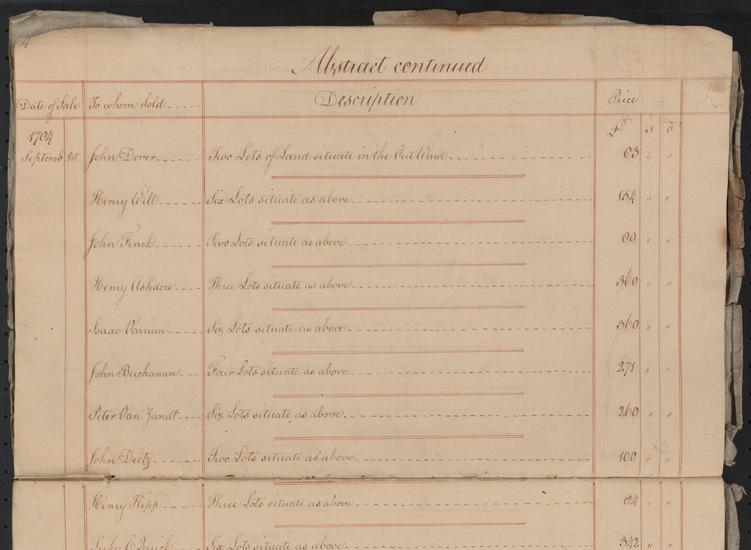 Abstract continued
Date of Sale To whom sold Description Price
£ s d
1784
Septemb 1st John Dover Two Lots of Land situate in the Out Ward 63 " "
Henry Will Six Lots situate as above 184 " "
John Finck Two Lots situate as above " "
Henry Ashdore Three Lots situate as above 360 " "
Isaac Varian Six Lots situate as above 360 " "
John Buchanan Four Lots situate as above 271 " "
Peter Van Zandt Six Lots situate as above 260 " "
John Dietz Two Lots situate as above 100 " "
Henry Kipp Three Lots situate as above 64 " "
Six Lots situate as above 342 " "